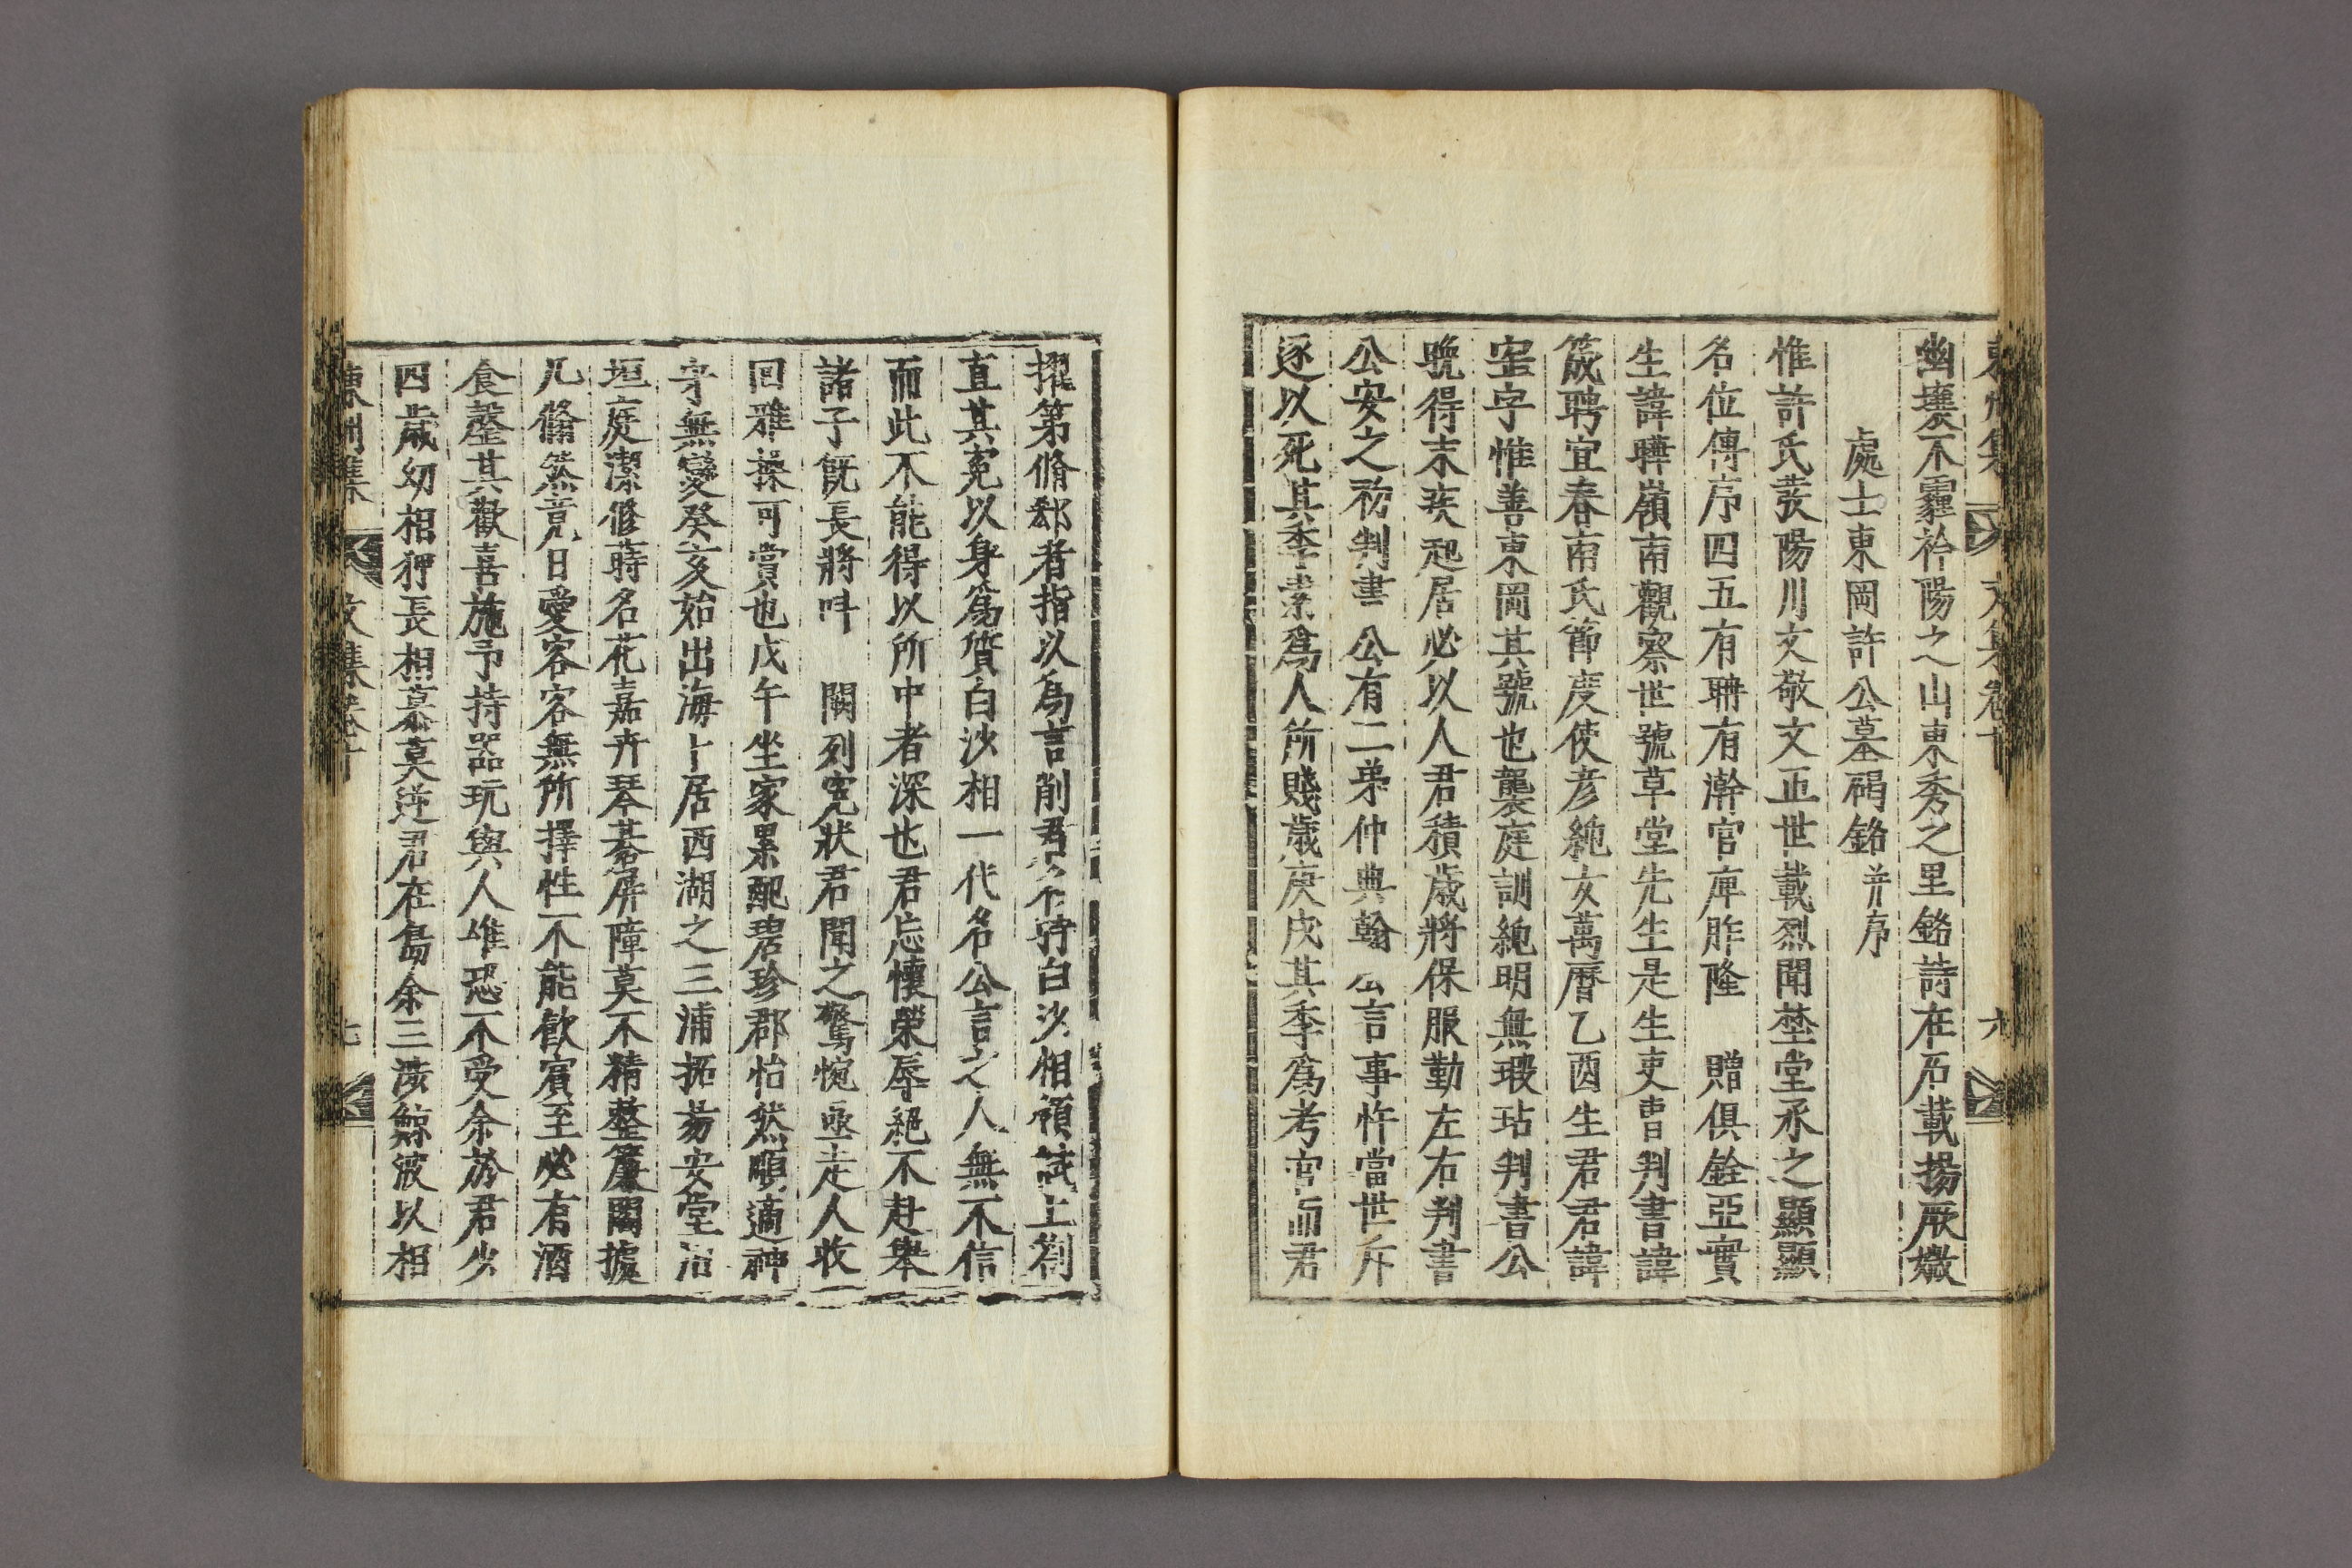 幽壤不霾衿陽之山東秀之里銘詩在石載揚厥徽
處士東岡許公墓碣銘并序
惟許氏發陽川文敬文正世載烈聞埜堂承之顯顯
名位傳序四五有聃有瀚官庳胙隆 贈俱銓亞實
生諱曄嶺南觀察世號草堂先生是生吏曹判書諱
筬聘宜春南氏節度使彦純女萬曆乙酉生君君諱
宲字惟善東岡其號也襲庭訓純明無瑕玷判書公
晩得末疾起居必以人君積歲將保服勤左右判書
公安之初判書公有二弟仲典翰公言事忤當世斥
逐以死其季素爲人所賤歲庚戌其季爲考官而君
擢第脩郤者指以爲言削君名時白沙相領試上箚
直其寃以身爲質白沙相一代名公言之人無不信
而此不能得以所中者深也君忘懷榮辱絕不赴擧
諸子旣長將呌 闕列寃狀君聞之驚惋亟走人收
回雅操可賞也戊午坐家累配碧珍郡怡然順適神
字無變癸亥始出海卜居西湖之三浦拓昜安堂治
垣庭潔修蒔名花嘉卉琴碁屏障莫不精整簾閣據
几翛然竟日愛客客無所擇性不能飮賓至必有酒
食罄其歡喜施予持器玩與人唯恐不受余於君少
四歲幼相狎長相慕莫逆君在島余三涉鯨波以相
東洲集 文集卷十 六
東洲集 文集卷十 七